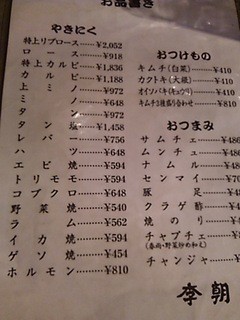 お品書き
やきにく
特上リブロース……¥2,052
ロース……¥918
特上カルビ……¥1,836
カルビ……¥1,188
上ミノ……¥972
ミノ……¥594
タン……¥972
タン塩……¥1,458
レバー……¥756
ハツ……¥648
エビ焼……¥594
トリモモ……¥594
コブクロ……¥648
野菜焼……¥540
ラム……¥562
イカ焼……¥594
ゲソ焼……¥454
ホルモン……¥810
おつけもの
キムチ(白菜)……¥410
カクトキ(大根)……¥410
オイソバキ(キュウリ)……¥410
キムチ3種盛り合わせ……¥810
おつまみ
サムチェ……¥486
ムンチュ……¥486
ナムル……¥486
センマイ……¥70
豚足……¥
クラゲ酢……¥4
焼のり……¥
チャプチェ……¥
(春雨・野菜炒め和え)
チャンジャ……¥
李朝